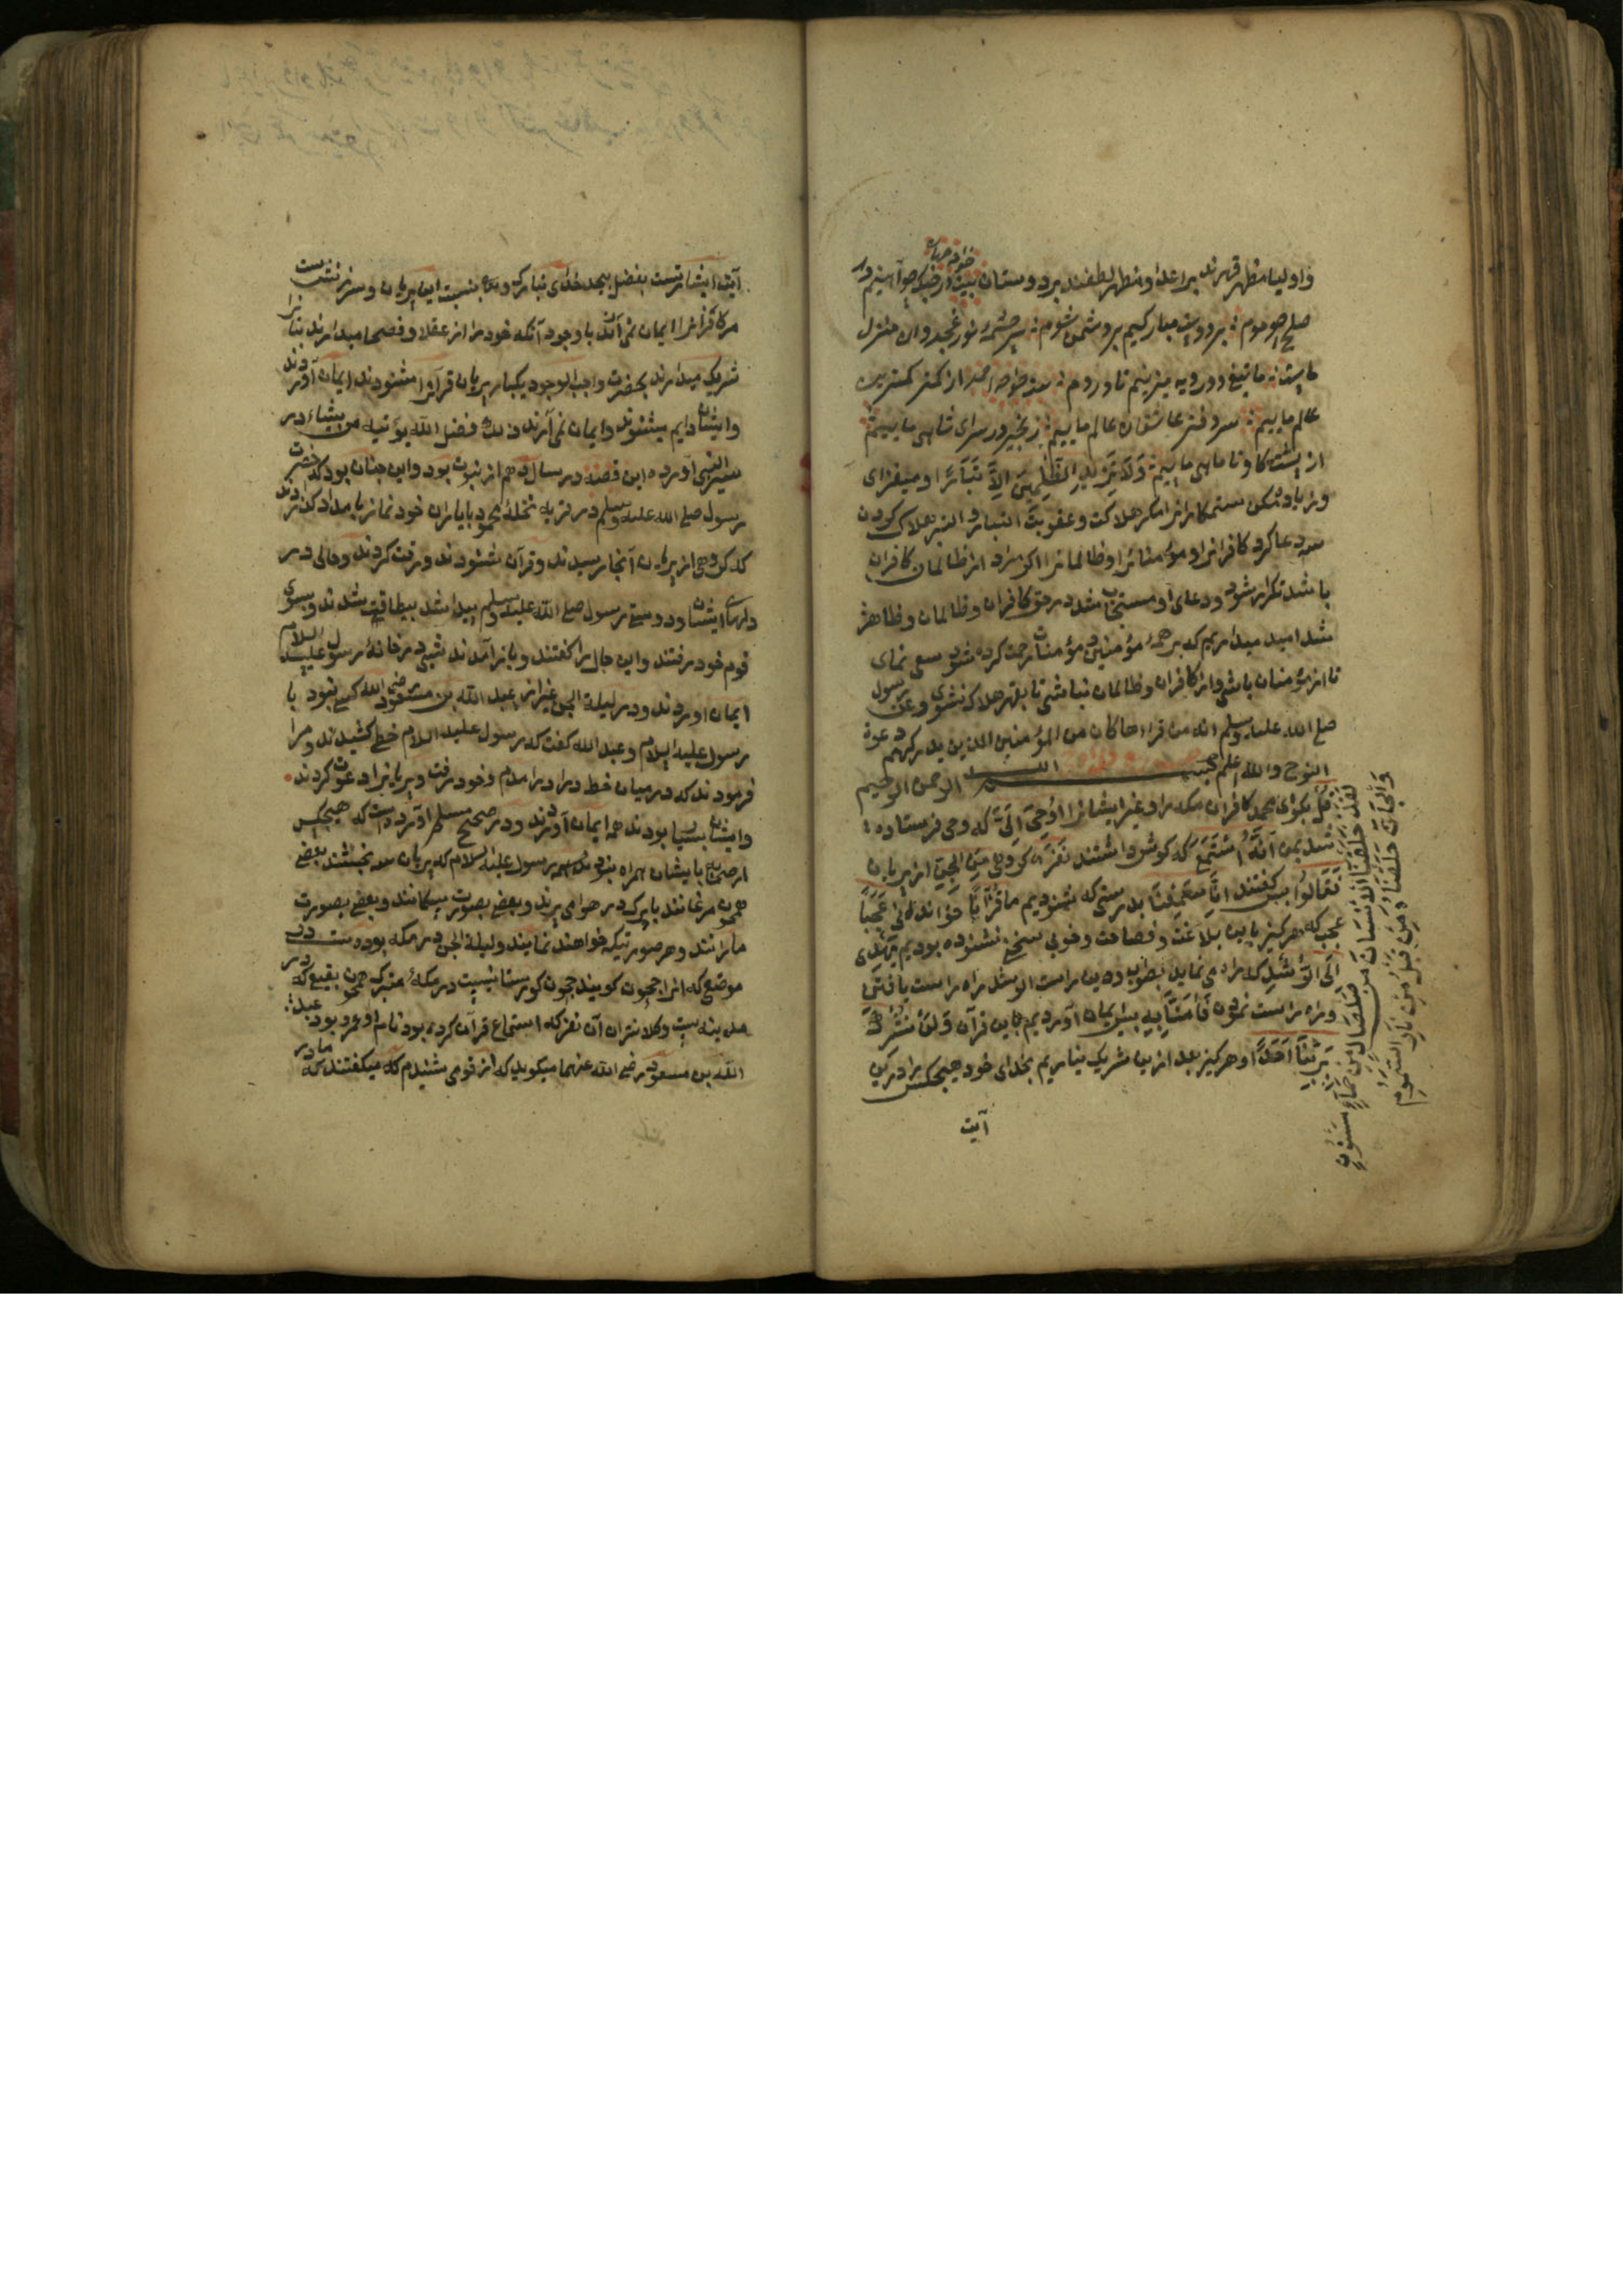 و اولیا مظهر قهرند بر اعدا و مظهر لطفند بر دوستان بیت در جنگ چو آهنیم و در
صلح چو موم بر دوست مبارکیم بر دشمن شوم سرچشمهٔ نور غجدوان منزل
ماست ما تیغ دو رویه میزنیم تا در روم از کمتر کمترین
عالم ماییم سر دفتر عاشقان عالم ماییم زنجیر در سرای شاهی ماییم
از پشت گاو تا ماهی ماییم وَلَا تَزِدِ الظّٰلِمِينَ اِلَّا تَبَارًا و میفزای
و زیاده مکن ستمکارانرا مگر هلاکت و عقوبت التبار و التبر هلاک کردن
دعا کرد کافرانرا و مؤمنانرا و ظالمانرا اگر مراد از ظالمان کافران
باشد تکرار شود و دعای او مستجاب شد در حق کافران و ظالمان و ظاهر
شد امید میداریم که بر همهٔ مؤمنین و مؤمنات رحمت کرده شود سعی نمای
تا از مؤمنان باشی و از کافران و ظالمان نباشی تا بقهر هلاک نشوی و عن رسول
صلی الله علیه وسلم انه من قراءها کان من المؤمنین الذین یدرکهم دعوة
النوح والله اعلم بسم الله الرحمن الرحیم
قُلْ بگوی محمد کافران مکه را و غیر ایشانرا اُوحِيَ اِلَيَّ که وحی فرستاده
شد بمن اَنَّهُ اسْتَمَعَ که گوش داشتند نَفَرٌ گروهی مِنَ الْجِنِّ از پریان
فَقَالُوا پس گفتند اِنَّا سَمِعْنَا بدرستی که شنودیم ما قُرْاٰنًا خواندنی عَجَبًا
عجب که هرگز باین بلاغت و فصاحت و خوبی سخنی نشنوده بودیم يَهْدِي
اِلَى الرُّشْدِ که راه می نماید بصواب و دین راست الرشد راه راست یافتن
و راه راست نمودن فَاٰمَنَّا بِهِ پس ایمان آوردیم باین قرآن وَلَنْ نُشْرِكَ
بِرَبِّنَا اَحَدًا و هرگز بعد ازین شریک نیاریم بخدای خود هیچکس را درین
آیت
لَقَدْ خَلَقْنَا الْاِنْسَانَ مِنْ صَلْصَالٍ مِنْ حَمَاٍ مَسْنُونٍ
وَالْجَانَّ خَلَقْنَاهُ مِنْ قَبْلُ مِنْ نَارِ السَّمُومِ
آیت اشارتست بفضل بیحد خدای تبارک و تعالی بنسبت این پریان و سرزنشست
مر کافرانرا ایمان نمی آرند با وجود آنکه خود را از عقلا و فصحا میدارند بتانرا
شریک میدارند بحضرت واجب الوجود یکبار پریان قرآنرا شنودند ایمان آوردند
و ایشان دایم میشنوند و ایمان نمی آرند ذلک فضل الله یؤتیه من یشاء در
سیر النبی آورده این قصه در سال دهم از نبوت بود و این چنان بود که حضرت
رسول صلی الله علیه وسلم در قریه نخلهٔ محمود با یاران خود نماز بامداد گذاردند
که گروهی از پریان آنجا رسیدند و قرآن شنودند و رقت کردند و حالی در
دلهای ایشان و دوستی رسول صلی الله علیه وسلم پیدا شد بیطاقت شدند و بسوی
قوم خود رفتند و این حال را گفتند و باز آمدند شبی در خانهٔ رسول علیه السلام
ایمان آوردند و در لیلة الجن غیر از عبد الله بن مسعود رضی الله کسی نبود با
رسول علیه السلام و عبد الله گفت که رسول علیه السلام خطی کشیدند و مرا
فرمودند که در میان خط درا درآمدم و خود رفت و پریانرا دعوت کردند
و ایشان بسیار بودند همه ایمان آوردند و در صحیح مسلم آورده است که هیچکس
از صحابه بایشان همراه نبود رسول علیه السلام که پریان سه بخشند بعضی
همچون مرغانند با پرک در هوا می پرند و بعضی بصورت سگانند و بعضی بصورت
مارانند و هر صورتیکه خواهند نمایند و لیلة الجن در مکه بودست در
موضع که آنرا جحون گویند جحون گورستانیست در مکهٔ متبرک همچون بقیع که در
مدینه است و کلانتران آن نفر که استماع قرآن کرده بود نام او عمرو بود عبد
الله بن مسعود رضی الله عنهما میگوید که از قومی شنیدم که میگفتند که مادر